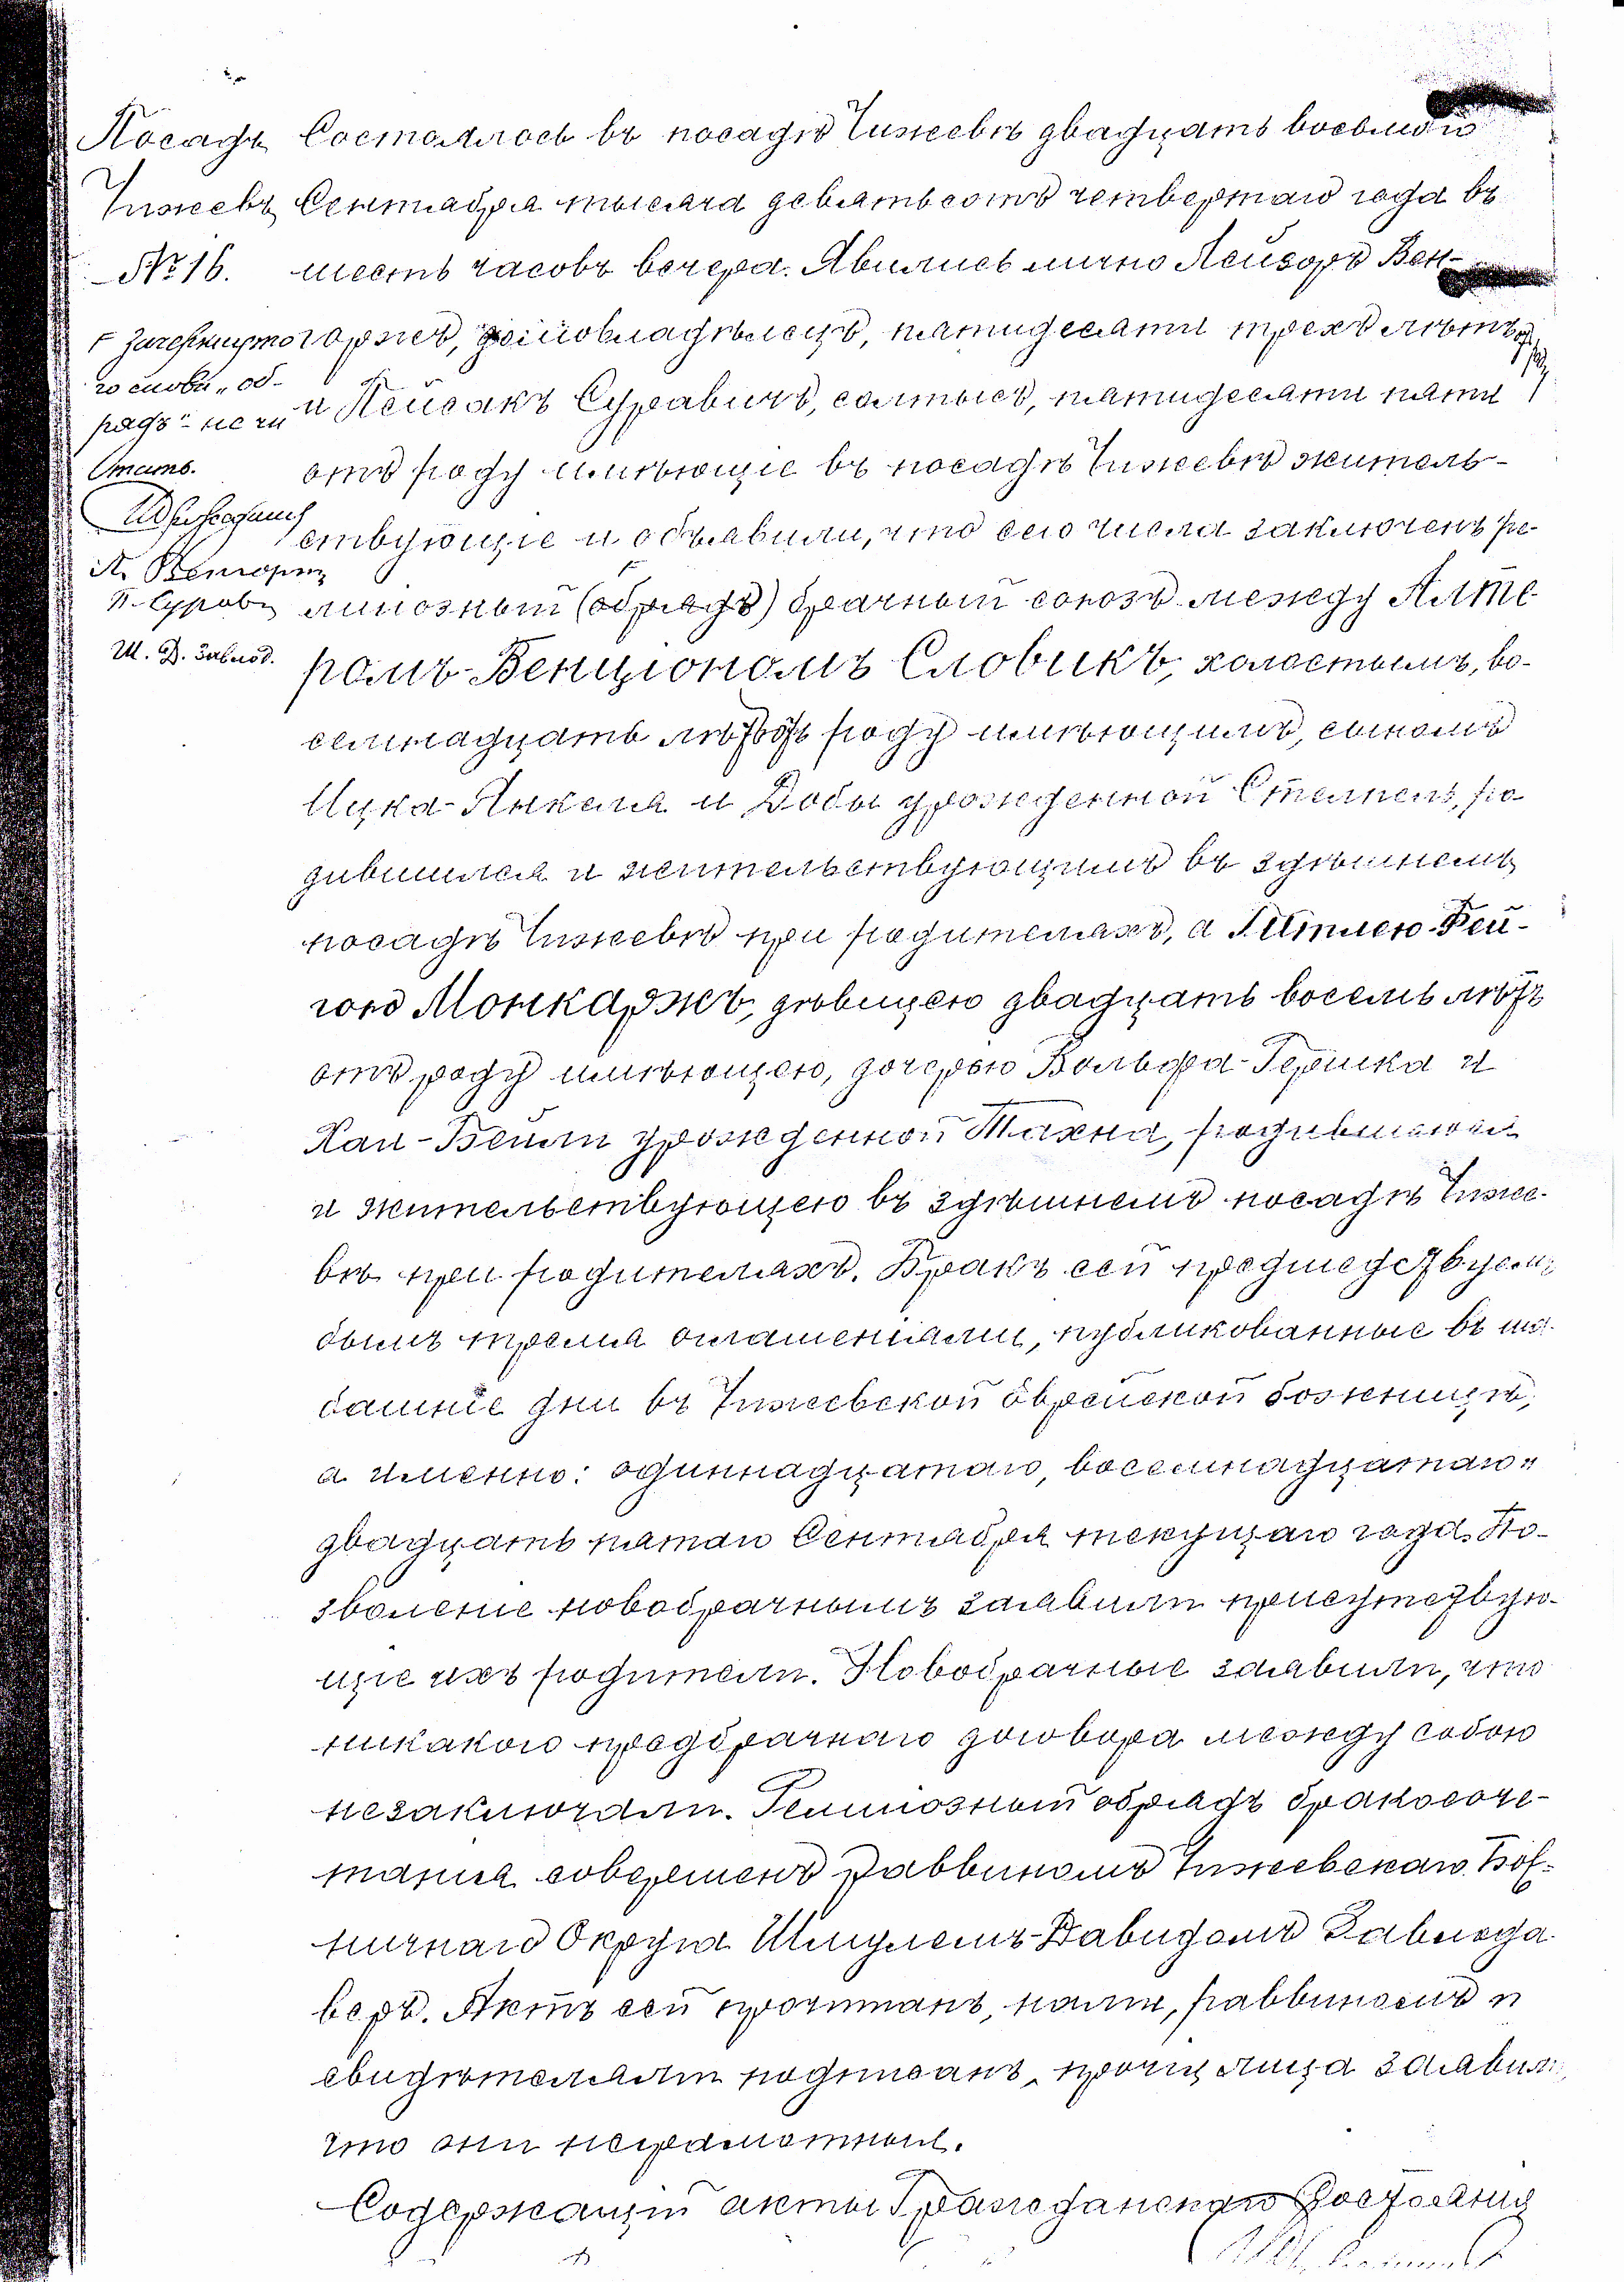 Посадъ
Чижевъ
№ 16.
Зачеркнутого слова „об-
рядъ" не чи
тать.
П. Суравъ
Ш. Д. Завлод.
Состоялось въ посадѣ Чижевѣ двадцать восьмаго
Сентября тысяча девятьсотъ четвертаго года въ
шесть часовъ вечера. Явились лично Лейзоръ Вен-
горжъ, домовладѣлецъ, пятидесяти трехъ лѣтъ,
и Пейсакъ Суравичъ, солтысъ, пятидесяти пяти
отъ роду имѣющіе въ посадѣ Чижевѣ житель-
ствующіе и объявили, что сего числа заключенъ ре-
лигіозный (обрядъ) брачный союзъ между Алте-
ромъ-Бенціономъ Словикъ, холостымъ, во-
семнадцать лѣтъ отъ роду имѣющимъ, сыномъ
Ицка-Янкеля и Добы урожденной Стемпень, ро-
дившимся и жительствующимъ въ здѣшнемъ
посадѣ Чижевѣ при родителяхъ, а Гитлею-Фей-
гою Монкаржъ, дѣвицею двадцать восемь лѣтъ
отъ роду имѣющею, дочерью Вольфа-Гершка и
Хаи-Бейли урожденной Тахна, родившеюся
и жительствующею въ здѣшнемъ посадѣ Чиже-
вѣ при родителяхъ. Бракъ сей предшедствуемъ
былъ тремя оглашеніями, публикованные въ ша-
башніе дни въ Чижевской Еврейской божницѣ,
а именно: одиннадцатаго, восемнадцатаго и
двадцать пятаго Сентября текущаго года. По-
зволеніе новобрачнымъ заявили присутствую-
щіе ихъ родители. Новобрачные заявили, что
никакого предбрачнаго договора между собою
незаключали. Религіозный обрядъ бракосоче-
танія совершенъ Раввиномъ Чижевскаго Бож-
ничнаго Округа Шмулемъ-Давидомъ Завлода
веръ. Актъ сей прочитанъ, нами, раввиномъ и
свидѣтелями подписанъ, прочіи лица заявили,
что они неграмотные.
Содержащій акты Гражданскаго Состоянія